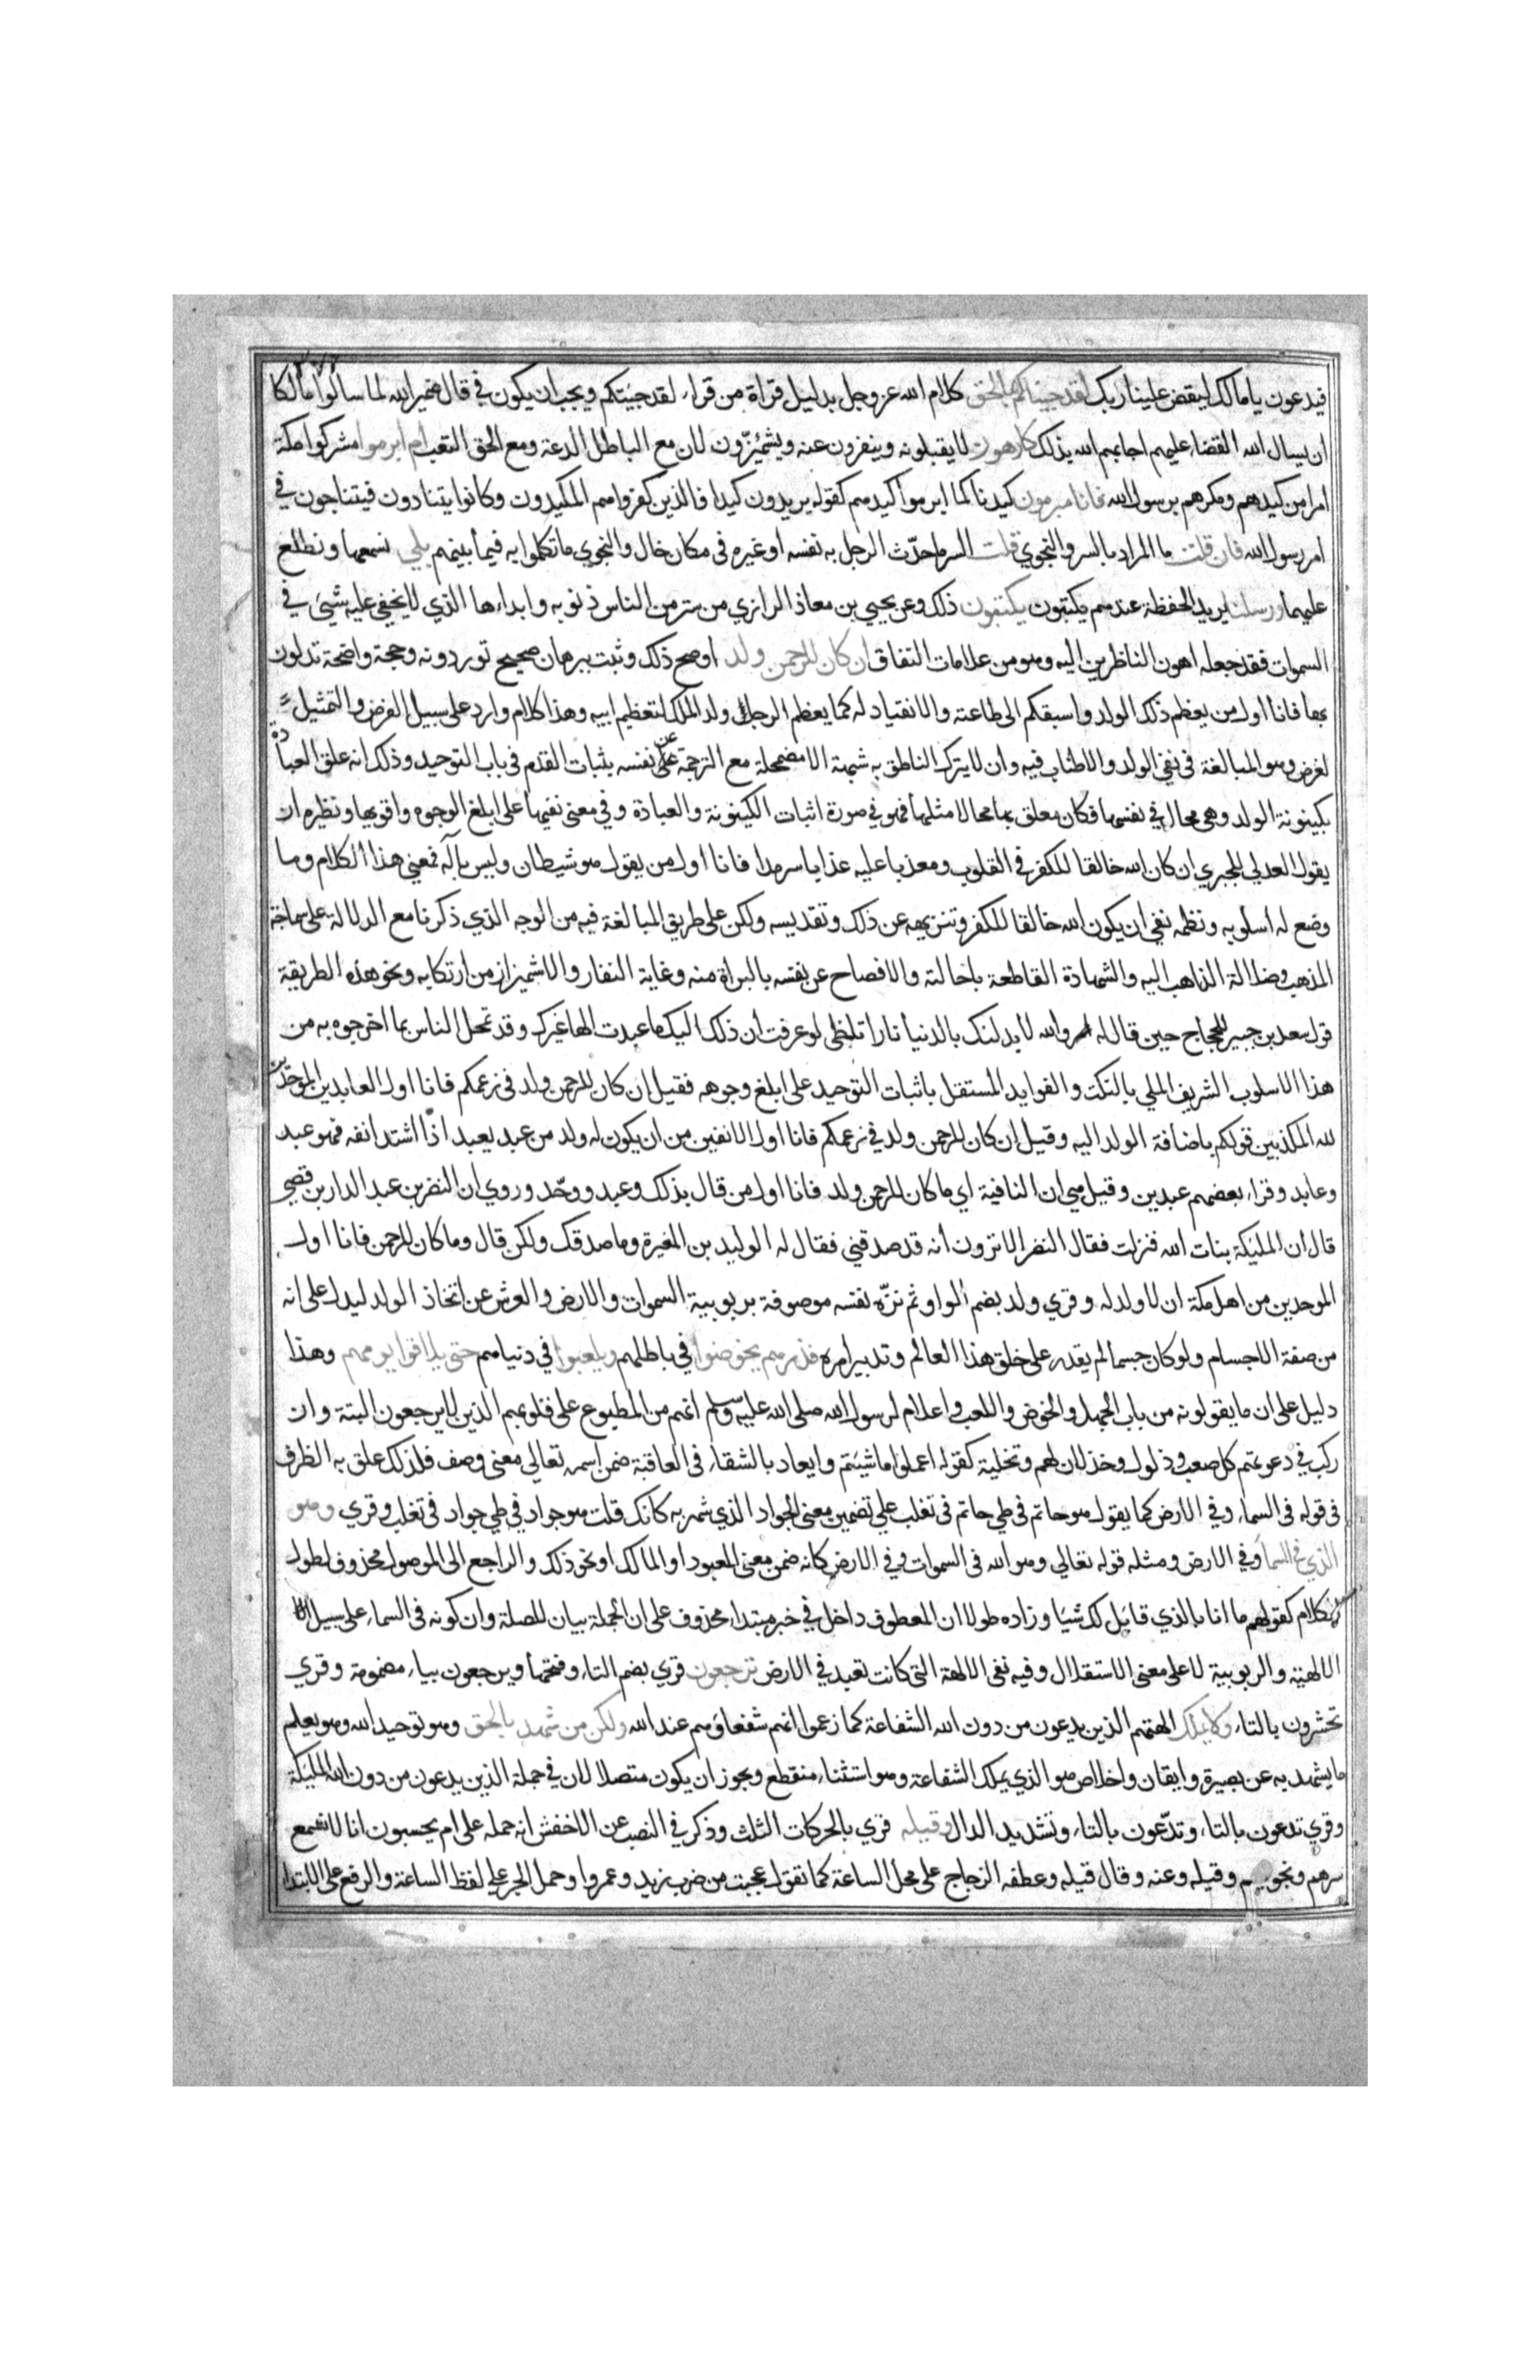 فيدعون يا مالك ليقض علينا ربك لقد جيناكم بالحق كلام الله عز وجل بدليل قراة من قراء لقد جيتكم ويجب ان يكون في قال ضمير الله لما سالوا مالكا
ان يسال الله القضاء عليهم اجابهم الله بذلك كارهون لا يقبلونه وينفرون عنه ويشمئزون لان مع الباطل الدعة ومع الحق التعب ام ابرموا مشركوا مكة
امرا من كيدهم ومكرهم برسول الله فانا مبرمون كيدنا كما ابرموا كيدهم كقوله يريدون كيدا فالذين كفروا هم المكيدون وكانوا يتنادون فيتناجون في
امر رسول الله فان قلت ما المراد بالسر والنجوي قلت السر ما حدّث الرجل به نفسه او غيره في مكان خال والنجوي ما تكلموا به فيما بينهم بلي نسمعها ونطلع
عليهما ورسلنا يريد الحفظة عندهم يكتبون يكتبون ذلك وعن يحيي بن معاذ الرازي من ستر من الناس ذنوبه وابداءها الذي لا يخفي عليه شيئ في
السموات فقد جعله اهون الناظرين اليه وهو من علامات النفاق ان كان للرحمن ولد اوضح ذلك وثبت ببرهان صحيح توردونه وحجة واضحة تدلون
بها فانا اول من يعظم ذلك الولد واسبقكم الي طاعته والانقياد له كما يعظم الرجل ولد الملك لتعظيم ابيه وهذا كلام وارد علي سبيل الفرض والتمثيل
لغرض وهو المبالغة في نفي الولد والاطناب فيه وان لا يترك الناطق به شبهة الا مضمحلة مع الترجمة عن نفسه بثبات القدم في باب التوحيد وذلك انه علق العبادة
بكينونة الولد وهي محال في نفسها فكان معلق بها محالا مثلها فهو في صورة اثبات الكينونة والعبادة وفي معني نفيهما علي ابلغ الوجوه واقويها ونظيره ان
يقول العدلي للمجبري ان كان الله خالقا للكفر في القلوب ومعذبا عليه عذابا سرمدا فانا اول من يقول هو شيطان وليس بإله فمعني هذا الكلام وما
وضع له اسلوبه ونظمه نفي ان يكون الله خالقا للكفر وتنزيهه عن ذلك وتقديسه ولكن علي طريق المبالغة فيه من الوجه الذي ذكرنا مع الدلالة علي سماجة
المذهب وضلالة الذاهب اليه والشهادة القاطعة باحالته والافصاح عن نفسه بالبراة منه وغاية النفار والاشميزاز من ارتكابه ونحو هذه الطريقة
قول سعد بن جبير للحجاج حين قال له اما والله لابدلنك بالدنيا نارا تلظي لو عرفت ان ذلك اليك ما عبدت الها غيرك وقد تمحل الناس بما اخرجوه به من
هذا الاسلوب الشريف الملي بالنكت والفوايد المستقل باثبات التوحيد علي ابلغ وجوهه فقيل ان كان للرحمن ولد في زعمكم فانا اول العابدين الموحدين
لله المكذبين قولكم باضافة الولد اليه وقيل ان كان للرحمن ولد في زعمكم فانا اول الانفين من ان يكون له ولد من عبد يعبد اذا اشتد انفه فهو عبد
وعابد وقراء بعضهم عبدين وقيل هي ان النافية اي ما كان للرحمن ولد فانا اول من قال بذلك وعبد ووحّد وروي ان النضر بن عبد الدار بن قصي
قال ان المليكة بنات الله فنزلت فقال النضر الا ترون انه قد صدقني فقال له الوليد بن المغيرة وما صدقك ولكن قال وما كان للرحمن فانا اول
الموحدين من اهل مكة ان لا ولد له وقري ولد بضم الواو ثم نزّه نفسه موصوفة بربوبية السموات والارض والعرش عن اتخاذ الولد ليدل علي انه
من صفة الاجسام ولو كان جسما لم يقدر علي خلق هذا العالم وتدبير امره فذرهم يخوضوا في باطلهم ويلعبوا في دنياهم حتي يلاقوا يومهم وهذا
دليل علي ان ما يقولونه من باب الجهل والخوض واللعب واعلام لرسول الله صلي الله عليه وسلم انهم من المطبوع علي قلوبهم الذين لا يرجعون البتة وان
ركب في دعوتهم كل صعب وذلول وخذلان لهم وتخلية كقوله اعملوا ما شيتم وايعاد بالشقاء في العاقبة ضمن اسمه تعالي معني وصف فلذلك علق به الظرف
في قوله في السماء وفي الارض كما يقول هو حاتم في طي حاتم في تغلب علي تضمين معني الجواد الذي شهر به كانك قلت هو جواد في طي جواد في تغلب وقري وهو
الذي في السماء وفي الارض ومثله قوله تعالي وهو الله في السموات وفي الارض كانه ضمن معني المعبود او المالك او نحو ذلك والراجع الي الموصول محذوف لطول
الكلام كقولهم ما انا بالذي قايل لك شيا وزاده طولا ان المعطوف داخل في خبر مبتداء محذوف علي ان الجملة بيان للصلة وان كونه في السماء علي سبيل
الالهية والربوبية لا علي معني الاستقلال وفيه نفي الالهة التي كانت تعبد في الارض ترجعون قري بضم التاء وفتحها ويرجعون بياء مضمومة وقري
تحشرون بالتاء ولا يملك الهتهم الذين يدعون من دون الله الشفاعة كما زعموا انهم شفعاؤهم عند الله ولكن من شهد بالحق وهو توحيد الله وهو يعلم
ما يشهد به عن بصيرة وايقان واخلاص هو الذي يملك الشفاعة وهو استثناء منقطع ويجوز ان يكون متصلا لان في جملة الذين يدعون من دون الله المليكة
وقري تدعون بالتاء وتدّعون بالتاء وتشديد الدال وقيله قري بالحركات الثلث وذكر في النصب عن الاخفش انه حمله علي ام يحسبون انا لا نسمع
سرهم ونجويهم وقيله وعنه وقال قيله وعطفه الزجاج علي محل الساعة كما تقول عجبت من ضرب زيد وعمروا وحمل الجر علي لفظ الساعة والرفع علي الابتداء